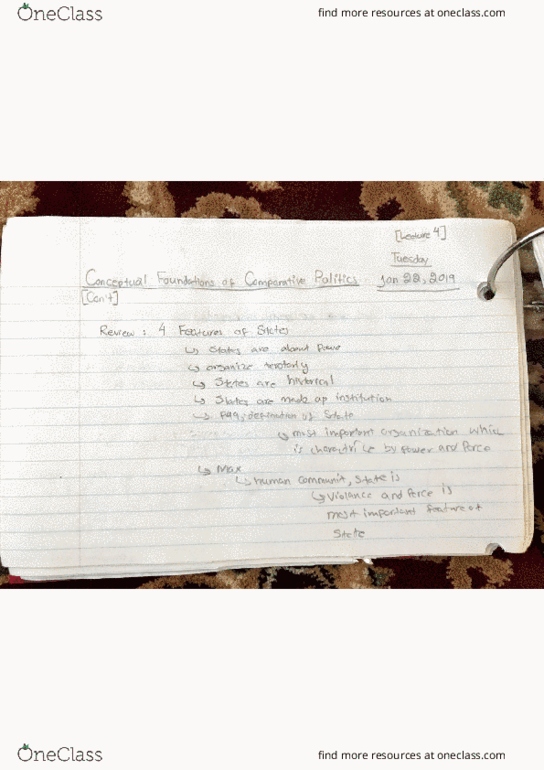 OneClass
find more resources at oneclass.com
[Lecture 4]
Tuesday
Conceptual Foundations of Comparative Politics Jan 22, 2019
[Con't]
Review : 4 Features of States
↳ States are about Power
↳ organize
↳ States are historical
↳ States are made up institution
↳ definition of State
↳ most important organization which
is by Power and Force
↳ Max
↳ human communit, State is
↳ Violance and Force is
most important feature of
State
OneClass
find more resources at oneclass.com